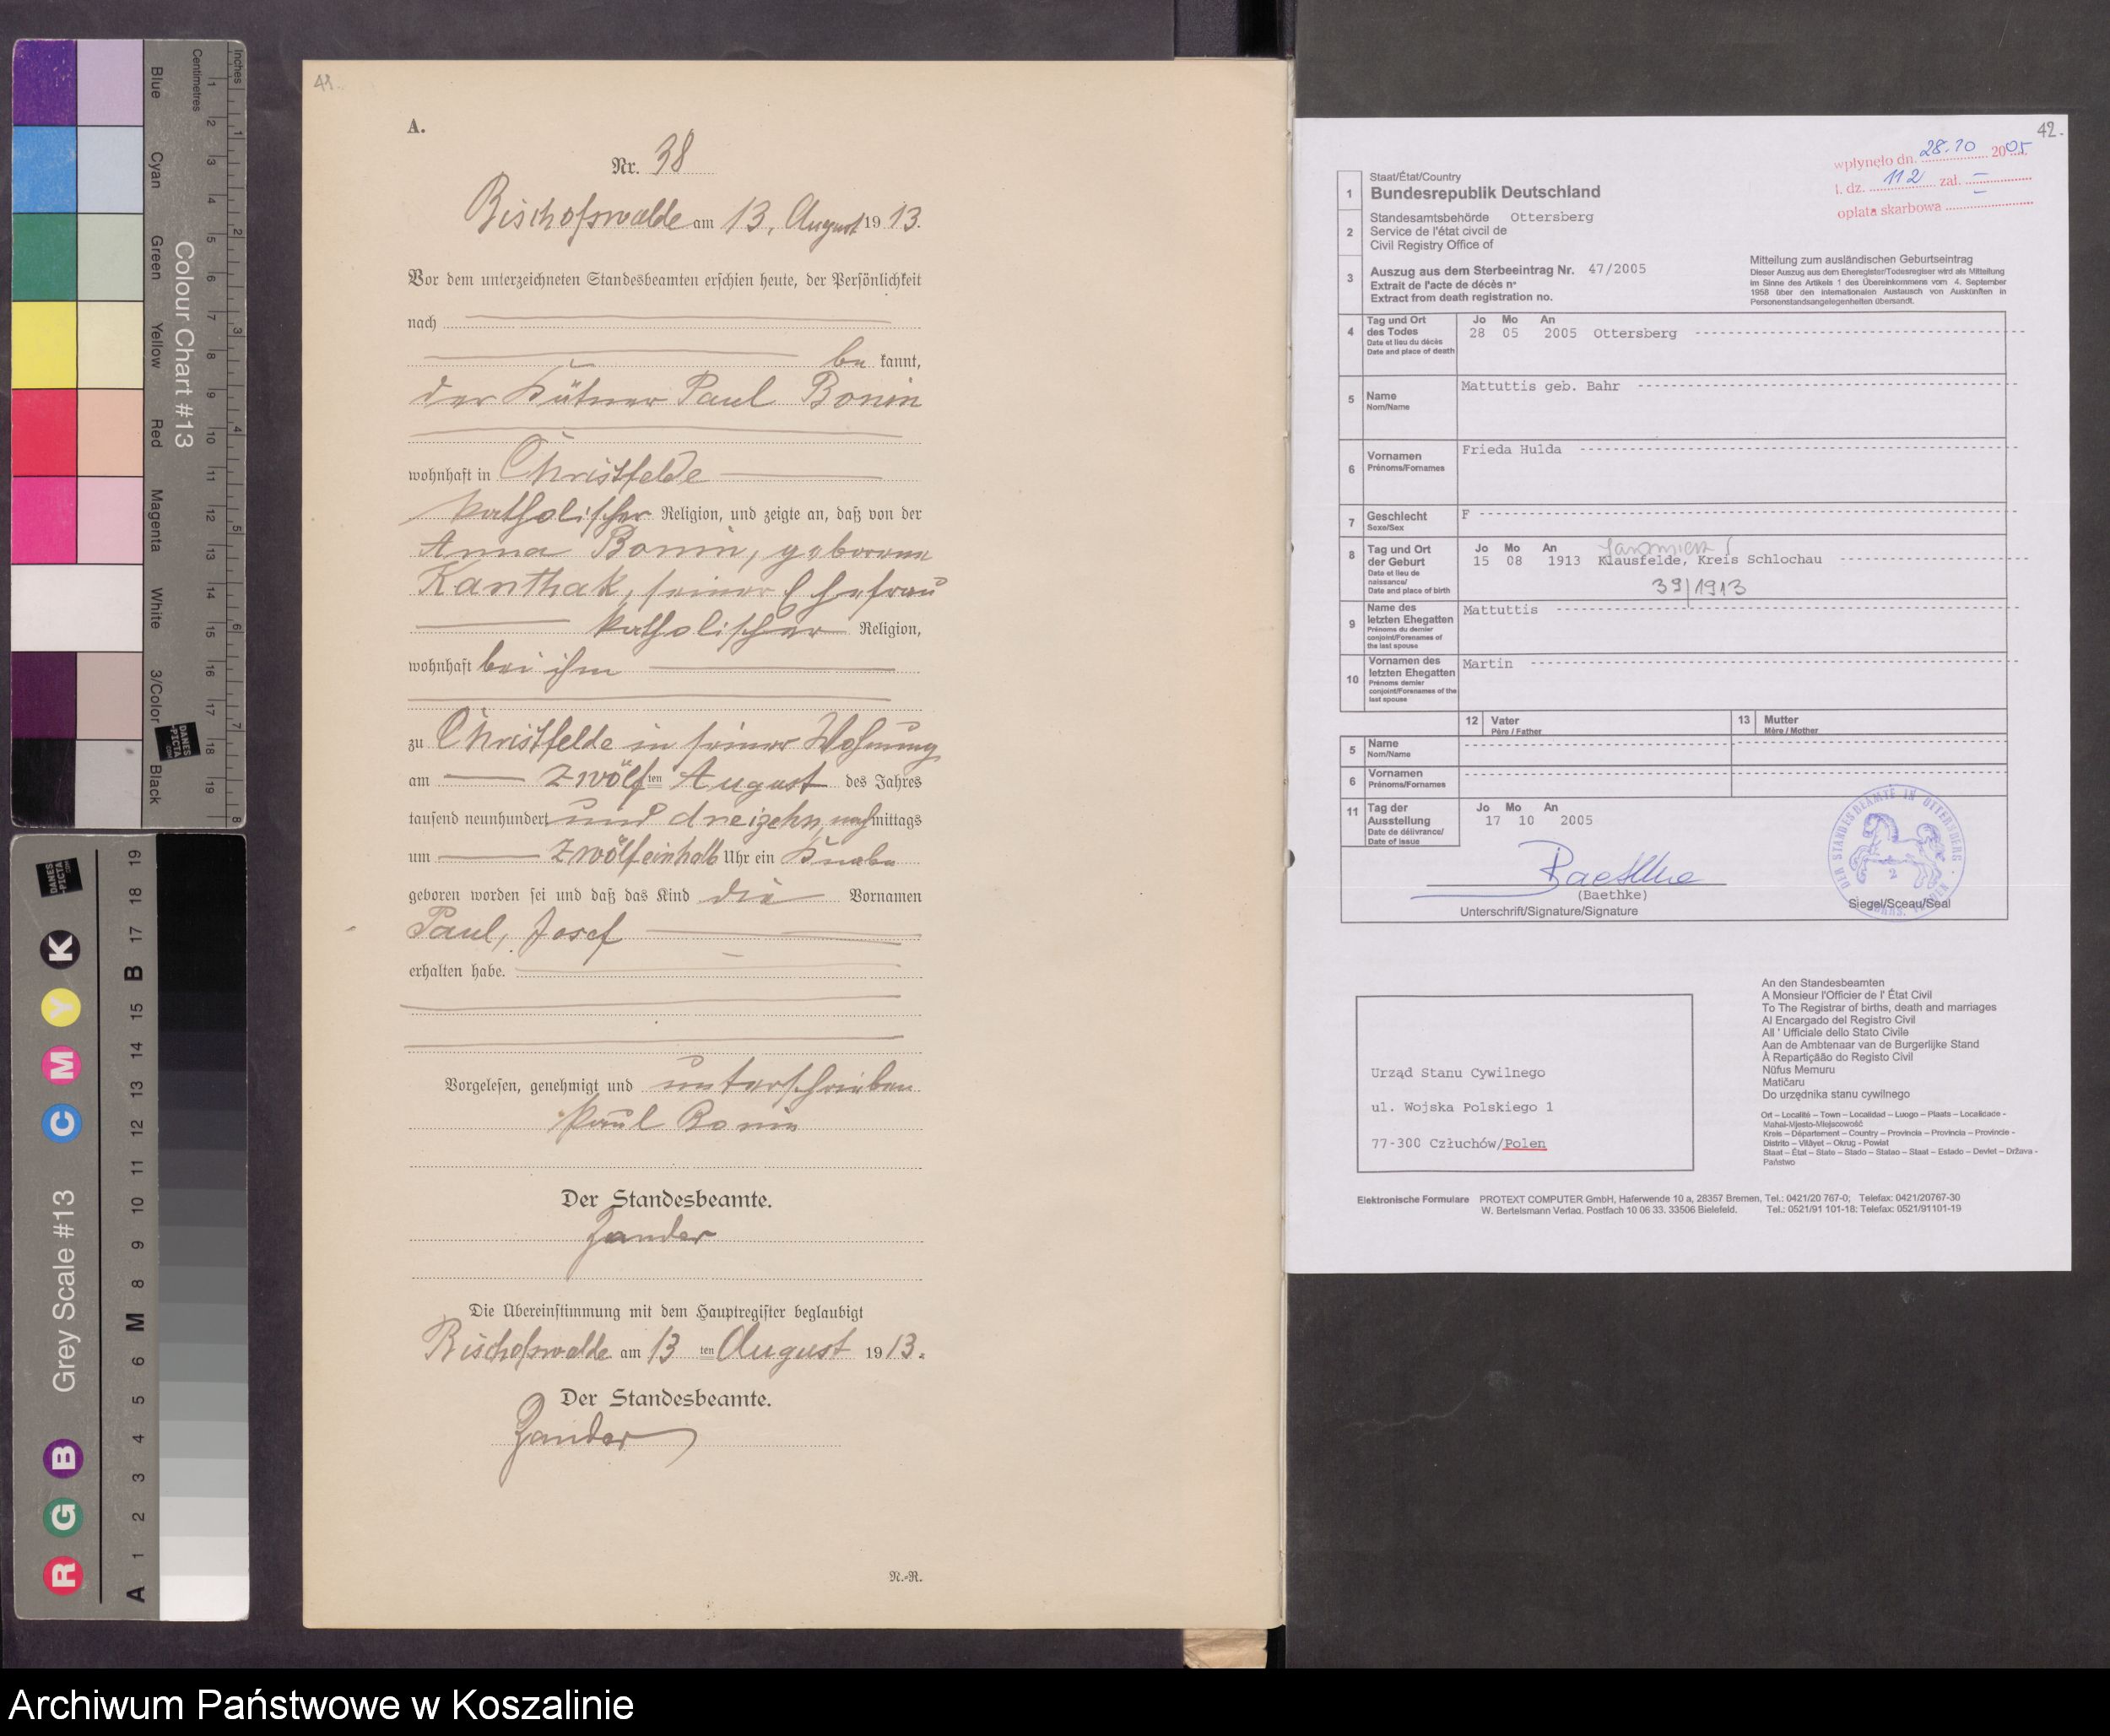 Inches
Centimetres
1 2 3 4 5 6 7 8
1 2 3 4 5 6 7 8 9 10 11 12 13 14 15 16 17 18 19
Colour Chart #13
Blue
Cyan
Green
Yellow
Red
Magenta
White
3/Color
Black
DANES
-PICTA
.COM
DANES
-PICTA
.COM
Grey Scale #13
R G B C M Y K
A 1 2 3 4 5 6 M 8 9 10 11 12 13 14 15 B 17 18 19
41.
A.
Nr. 38
Bischofswalde am 13. August 1913.
Vor dem unterzeichneten Standesbeamten erschien heute, der Persönlichkeit
nach
be kannt,
der Kätner Paul Bonin
wohnhaft in Christfelde
katholischer Religion, und zeigte an, daß von der
Anna Bonin, geborenen
Kanthak, seiner Ehefrau
katholischer Religion,
wohnhaft bei ihm
zu Christfelde in seiner Wohnung
am zwölf ten August des Jahres
tausend neunhundert und dreizehn, nachmittags
um zwölfeinhalb Uhr ein Knabe
geboren worden sei und daß das Kind die Vornamen
Paul, Josef
erhalten habe.
Vorgelesen, genehmigt und unterschrieben
Paul Bonin
Der Standesbeamte.
Zander
Die Übereinstimmung mit dem Hauptregister beglaubigt
Bischofswalde am 13 ten August 1913.
Der Standesbeamte.
Zander
N.-R.
42.
wpłynęło dn. 28.10 2005
l. dz. 112 zał. —
opłata skarbowa
1 Staat/État/Country
Bundesrepublik Deutschland
2 Standesamtsbehörde Ottersberg
Service de l'état civcil de
Civil Registry Office of
3 Auszug aus dem Sterbeeintrag Nr. 47/2005
Extrait de l'acte de décès n°
Extract from death registration no.
Mitteilung zum ausländischen Geburtseintrag
Dieser Auszug aus dem Eheregister/Todesregiser wird als Mitteilung
im Sinne des Artikels 1 des Übereinkommens vom 4. September
1958 über den internationalen Austausch von Auskünften in
Personenstandsangelegenheiten übersandt.
4 Tag und Ort
des Todes
Date et lieu du décès
Date and place of death
Jo Mo An
28 05 2005 Ottersberg
5 Name
Nom/Name
Mattuttis geb. Bahr
6 Vornamen
Prénoms/Fornames
Frieda Hulda
7 Geschlecht
Sexe/Sex
F
8 Tag und Ort
der Geburt
Date et lieu de
naissance/
Date and place of birth
Jo Mo An
15 08 1913 Klausfelde, Kreis Schlochau
39/1913
9 Name des
letzten Ehegatten
Prénoms du dernier
conjoint/Forenames of
the last spouse
Mattuttis
10 Vornamen des
letzten Ehegatten
Prénoms dernier
conjoint/Forenames of the
last spouse
Martin
12 Vater
Père / Father
13 Mutter
Mère / Mother
5 Name
Nom/Name
6 Vornamen
Prénoms/Fornames
11 Tag der
Ausstellung
Date de délivrance/
Date of issue
Jo Mo An
17 10 2005
Baethke
(Baethke)
Unterschrift/Signature/Signature
DER STANDESBEAMTE IN OTTERSBERG
2
Siegel/Sceau/Seal
Urząd Stanu Cywilnego
ul. Wojska Polskiego 1
77-300 Człuchów/Polen
An den Standesbeamten
A Monsieur l'Officier de l' État Civil
To The Registrar of births, death and marriages
Al Encargado del Registro Civil
All ' Ufficiale dello Stato Civile
Aan de Ambtenaar van de Burgerlijke Stand
À Repartiçãão do Registo Civil
Nüfus Memuru
Matičaru
Do urzędnika stanu cywilnego
Ort – Localité – Town – Localidad – Luogo – Plaats – Localidade -
Mahal-Mjesto-Miejscowość
Kreis – Département – Country – Provincia – Provincia – Provincie -
Distrito – Vilâyet – Okrug - Powiat
Staat – État – State – Stado – Statao – Staat – Estado – Devlet – Država -
Państwo
Elektronische Formulare PROTEXT COMPUTER GmbH, Haferwende 10 a, 28357 Bremen, Tel.: 0421/20 767-0; Telefax: 0421/20767-30
W. Bertelsmann Verlag. Postfach 10 06 33. 33506 Bielefeld. Tel.: 0521/91 101-18: Telefax: 0521/91101-19
Archiwum Państwowe w Koszalinie